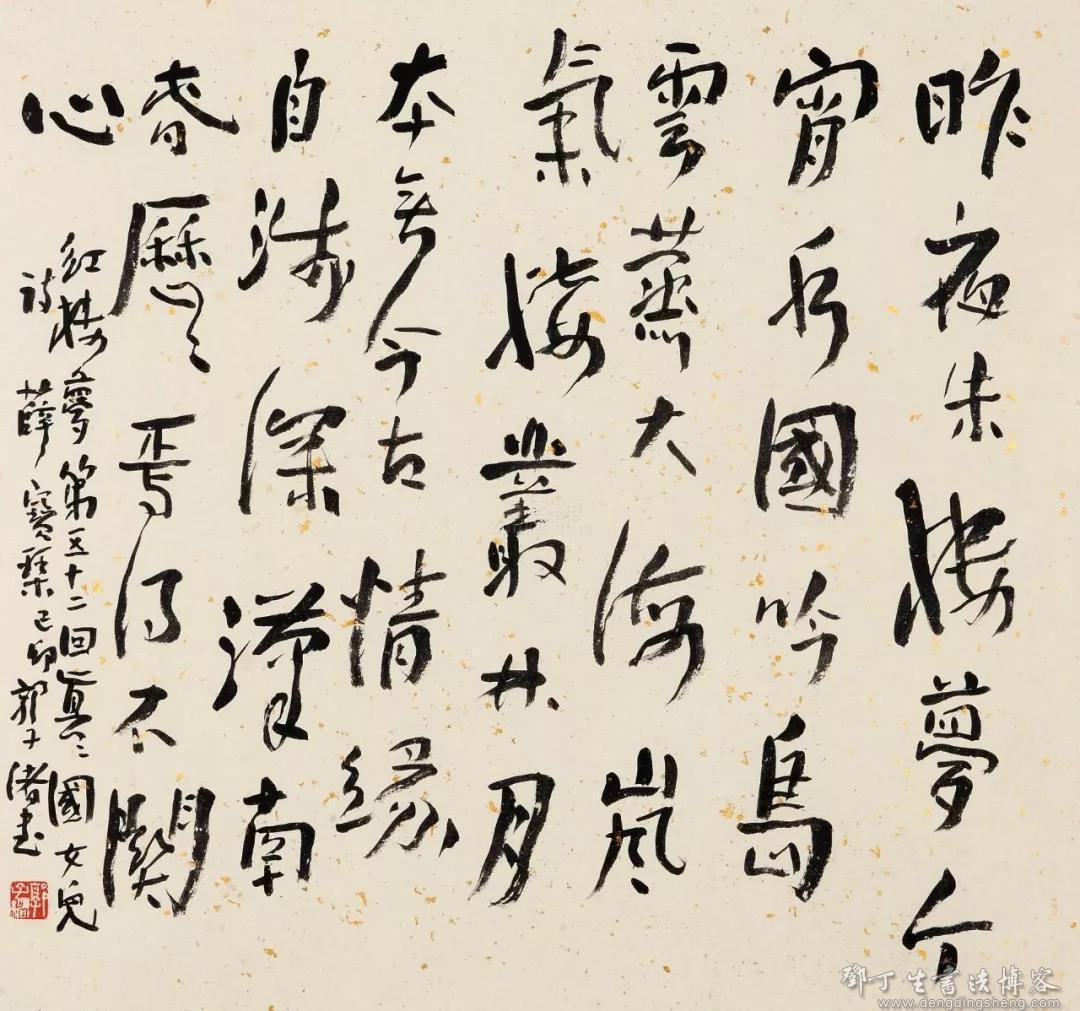 昨夜朱樓夢今
宵水國吟島
雲蒸大海嵐
氣接叢林月
本無今古情緣
自淺深漢南
春歷々焉得不關
心
紅樓夢第五十二回真々國女兒
詩 薛寶琴 己卯郭子緒書
鄧丁生書法博客
www.dengdingsheng.com